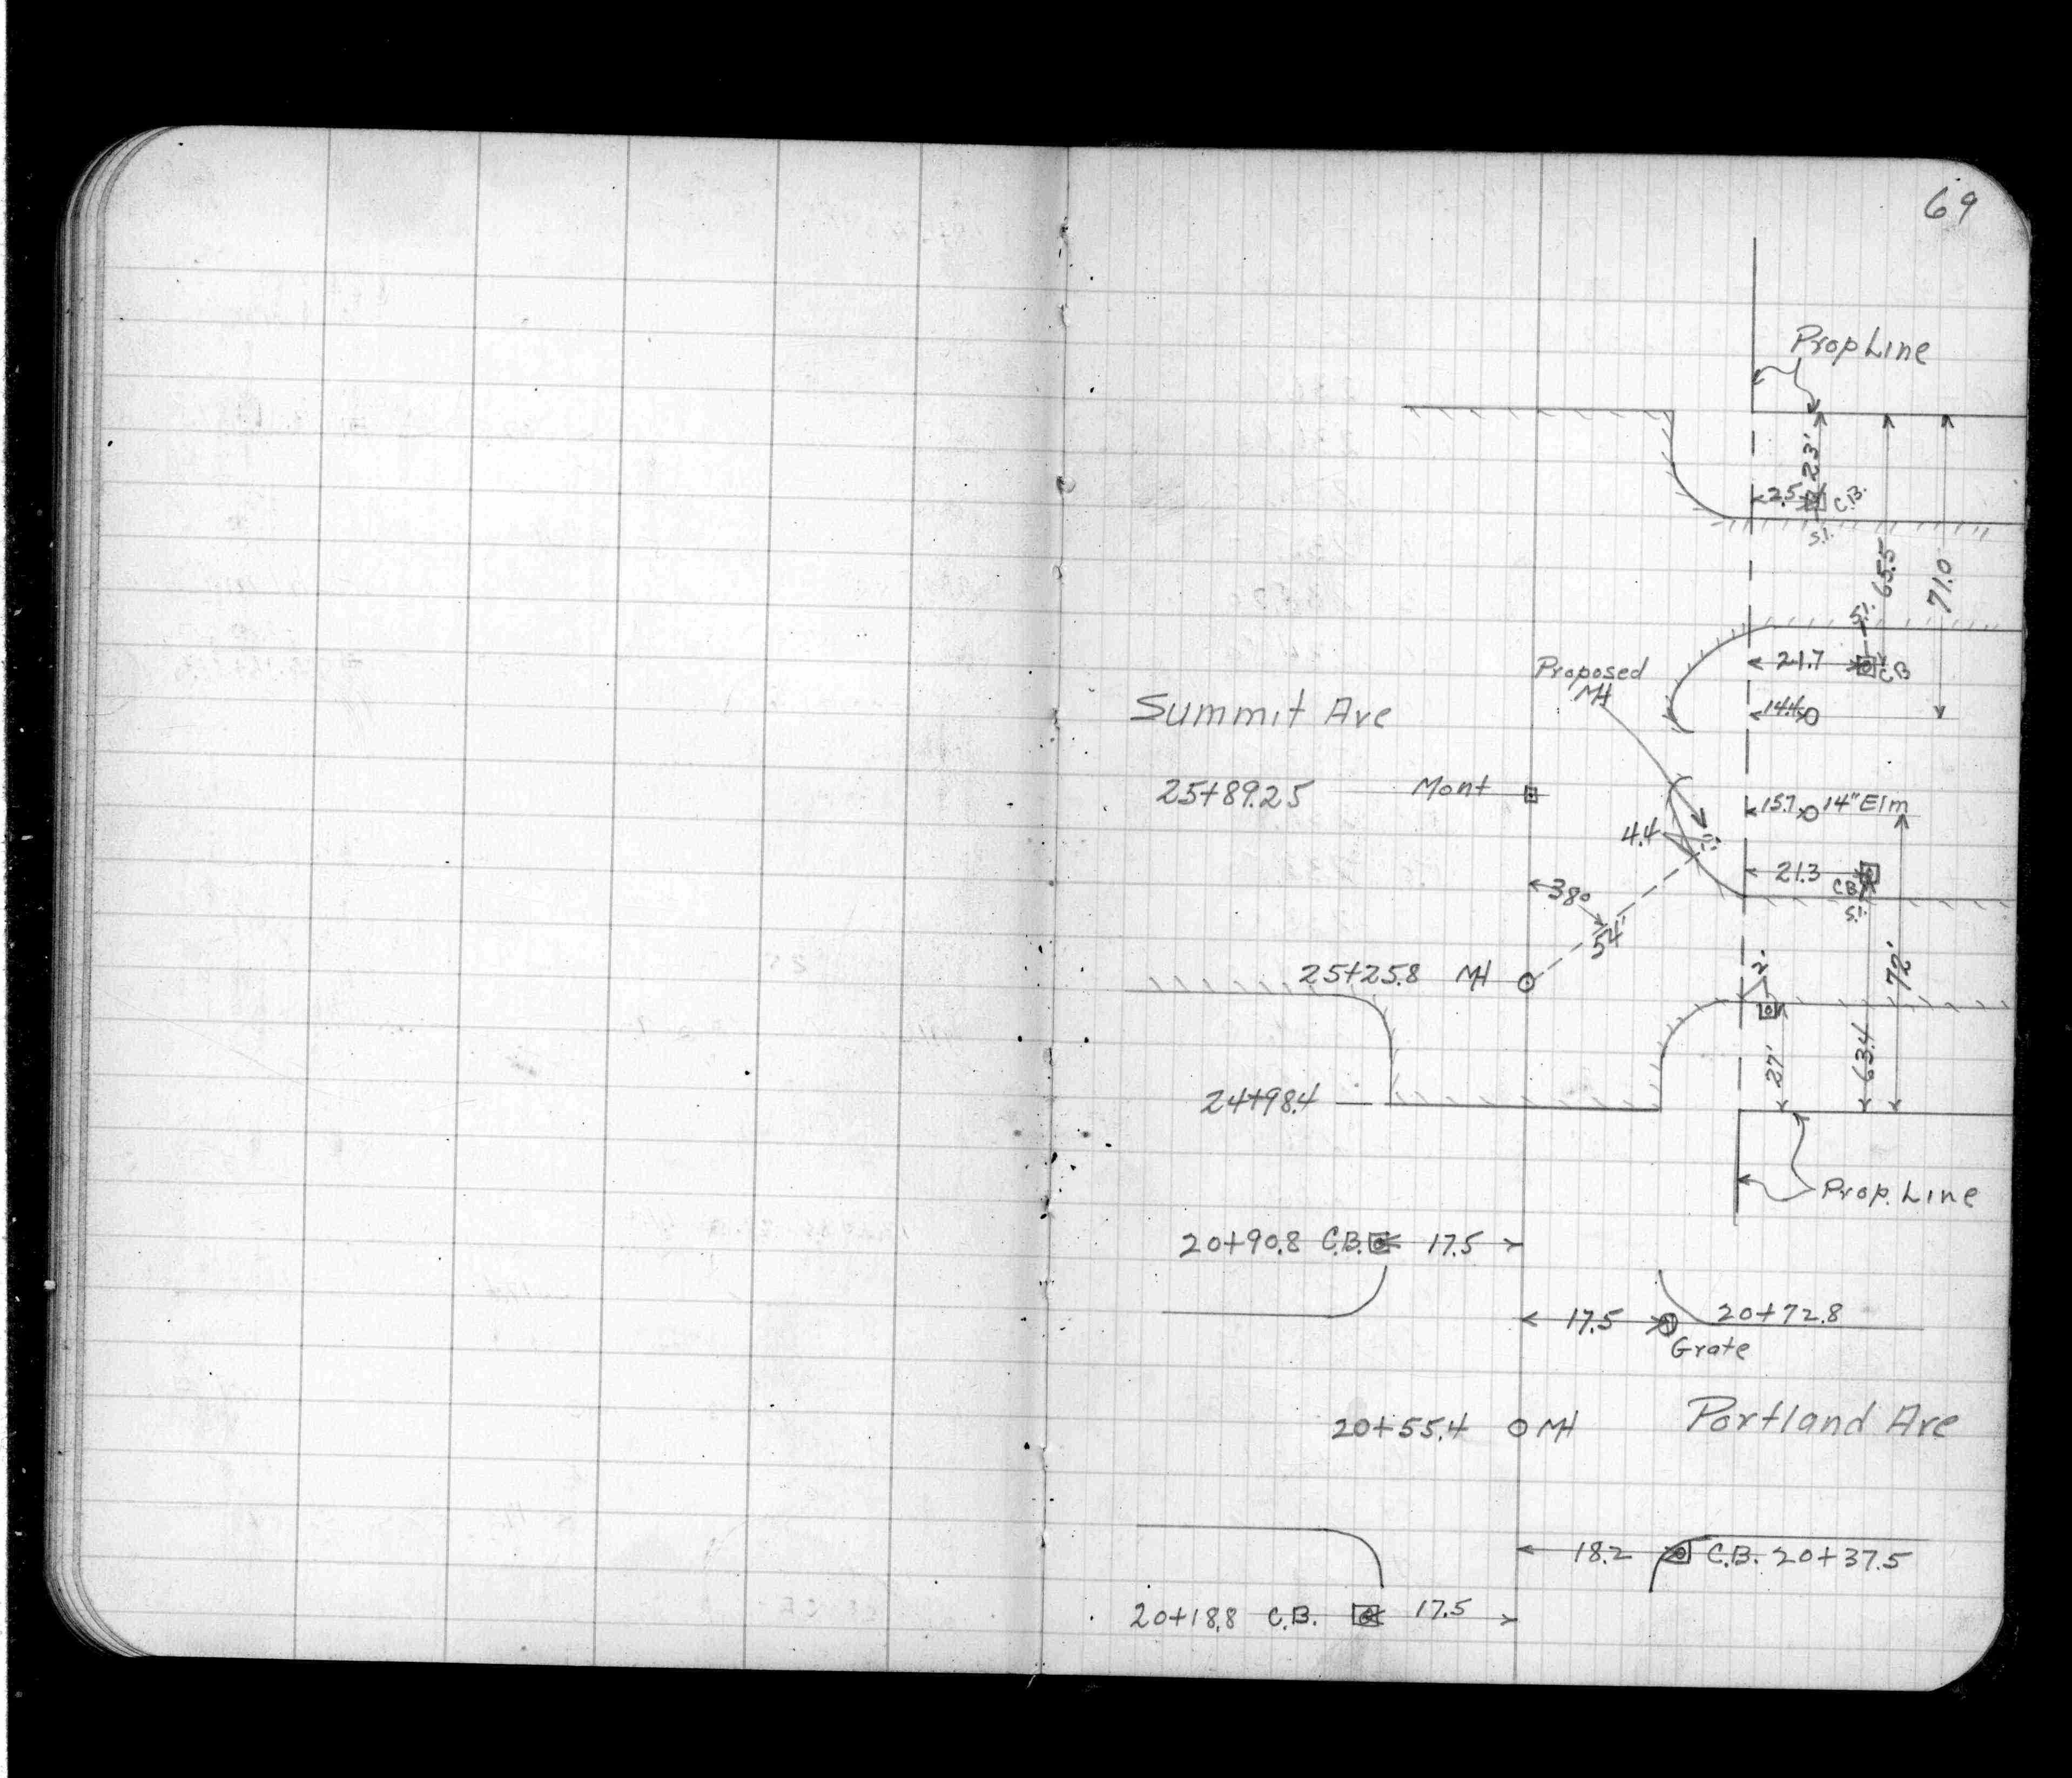 69
Prop Line
23'
2.5 C.B.
5.1.
65.5
71.0
5.1.
21.7 CB
Proposed
MH
14.4
Summit Ave
25+89.25 Mont
15.7 14" Elm
4.4
21.3 CB
5.1.
38°
54'
2'
72'
25+25.8 MH
27'
63.4
24+98.4
Prop. Line
20+90.8 C.B. 17.5
17.5 20+72.8
Grate
20+55.4 MH Portland Ave
18.2 C.B. 20+37.5
20+18.8 C.B. 17.5